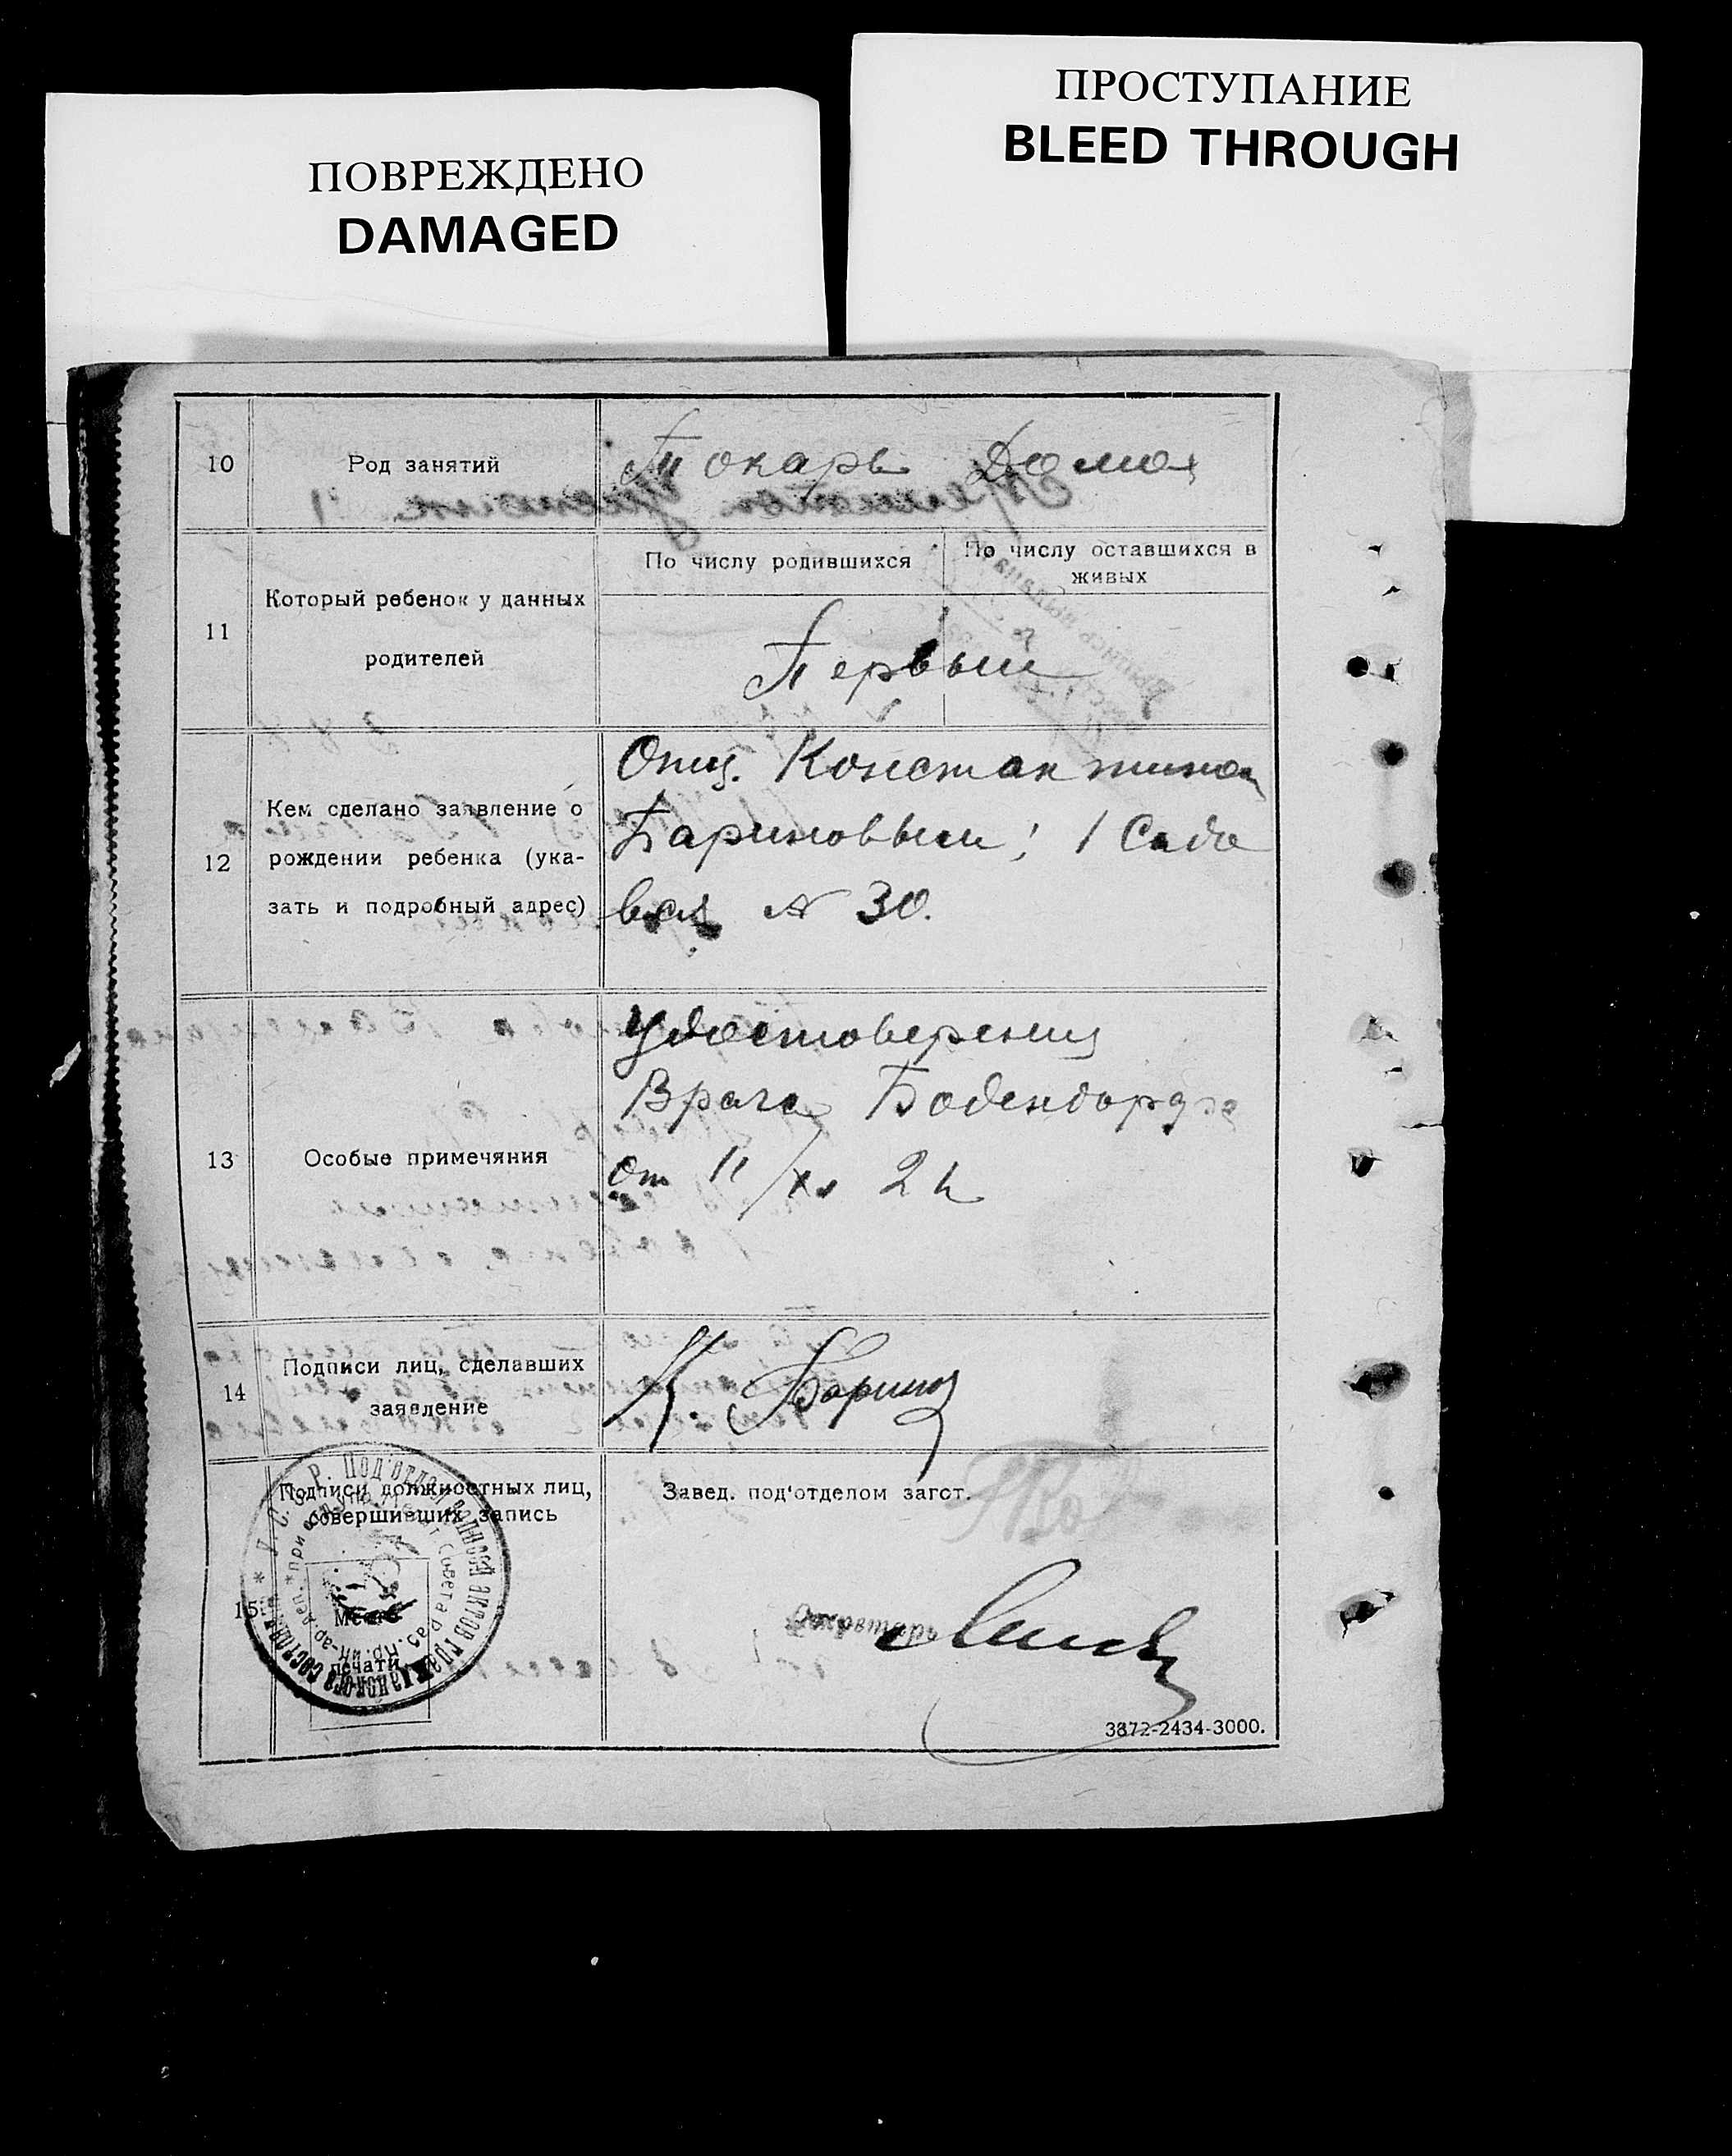 ПОВРЕЖДЕНО
DAMAGED
ПРОСТУПАНИЕ
BLEED THROUGH
10
Род занятий
Токарь Дома
11
Который ребенок у данных
родителей
По числу родившихся
По числу оставшихся в
живых
Первым
12
Кем сделано заявление о
рождении ребенка (ука-
зать и подробный адрес)
Отц. Константином
Бариновым; 1 Садо
вая № 30.
13
Особые примечяния
Удостоверения
Врача
от 11/XI 24
14
Подписи лиц, сделавших
заявление
К. Баринов
15
Подписи должностных лиц,
совершивших запись
Место
печати
Завед. под'отделом загст.
Секретарь
3872-2434-3000.